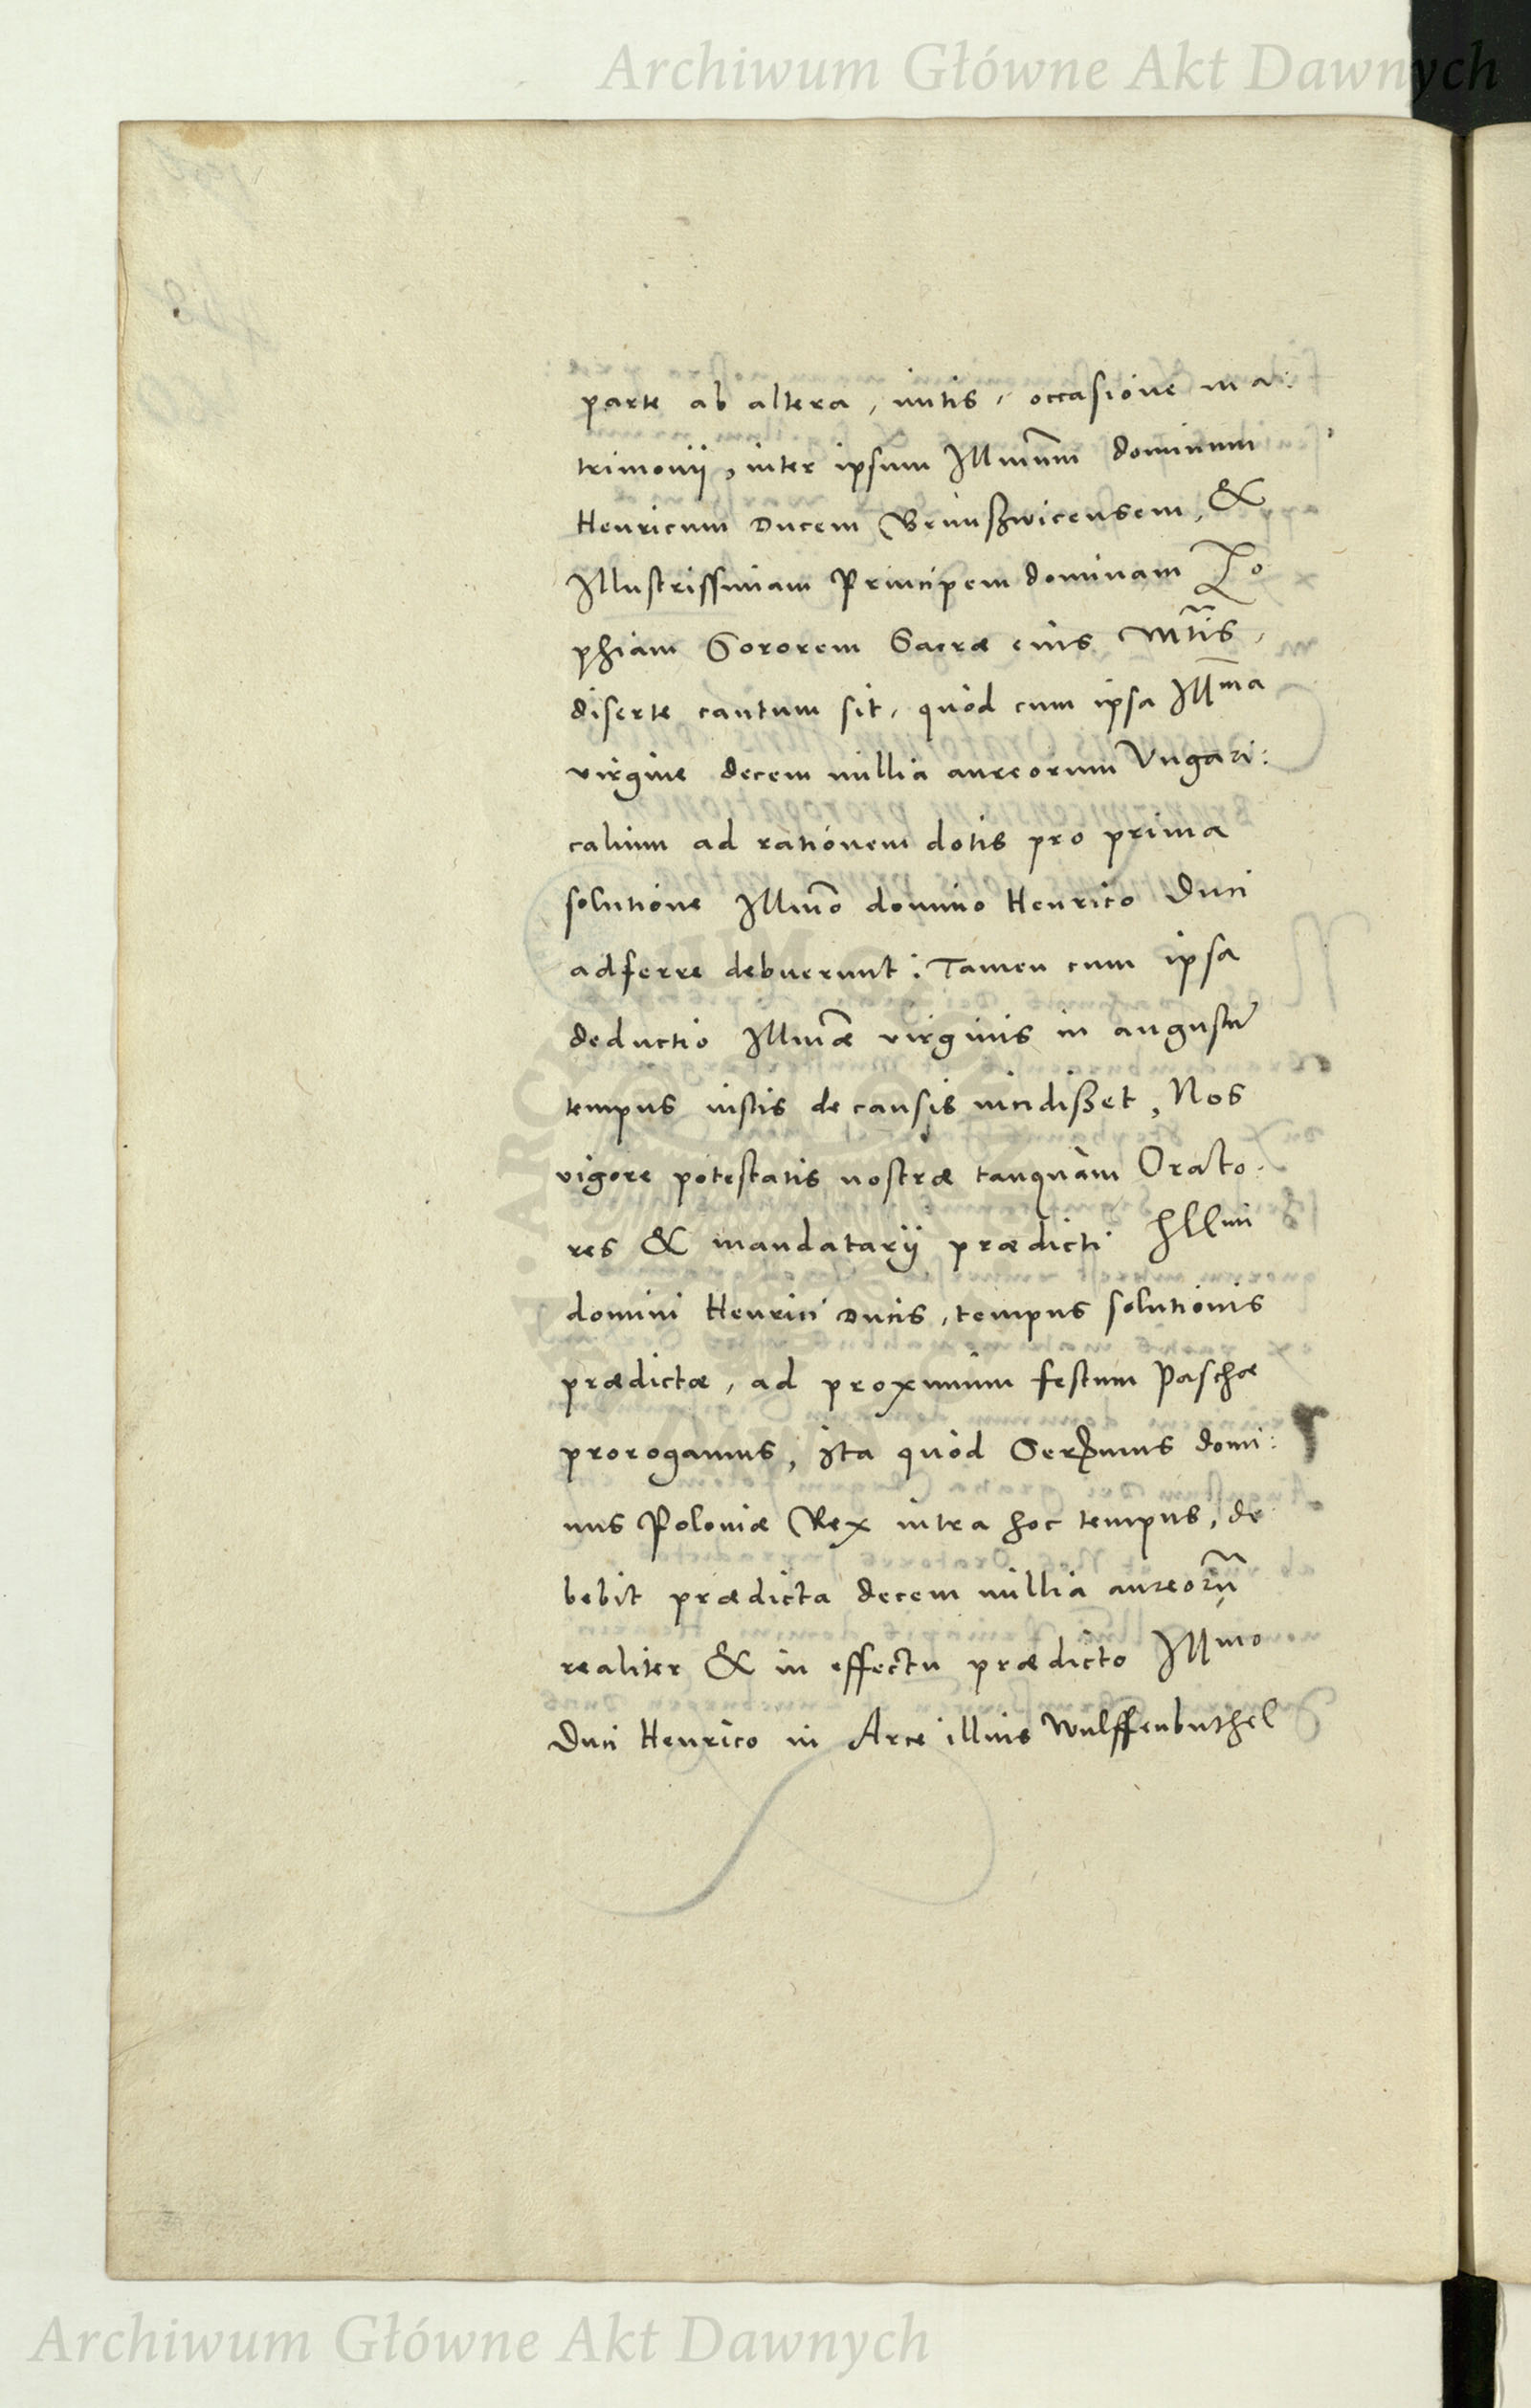 Archiwum Główne Akt Dawnych
parte ab altera, initis, occasione ma:
trimonij, inter ipsum Illmum dominum
Henricum Ducem Brunßwicensem, &
Illustrissimam Principem dominam Zo
phiam Sororem Sacræ eius Mtis,
diserte cautum sit, quòd cum ipsa Illma
virgine decem millia aureorum Vngari:
calium ad rationem dotis pro prima
solutione Illmo domino Henrico Duci
adferre debuerunt: Tamen cum ipsa
deductio Illmæ virginis in angustũ
tempus iustis de causis incidißet, Nos
vigore potestatis nostræ tanquàm Orato:
res & mandatarij prædicti Illmi
domini Henrici Ducis, tempus solutionis
prædictæ, ad proximum festum Paschæ
prorogamus, Ita quòd Serenmus domi:
nus Poloniæ Rex intra hoc tempus, de
bebit prædicta decem millia aureorũ
realiter & in effectu prædicto Illmo
Duci Henrico in Arce illius Wulffenbuthel
Archiwum Główne Akt Dawnych